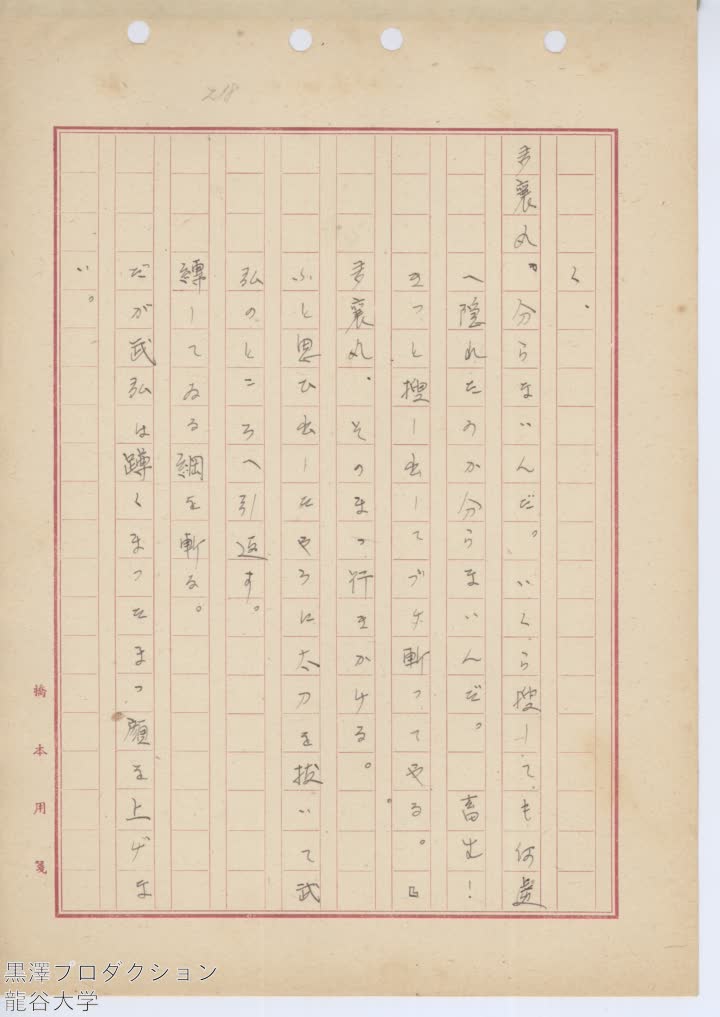 218
く、
多襄丸。「分らないんだ。いくら捜しても何處
へ隠れたのか分らないんだ。畜生!
きっと捜し出してブタ斬ってやる。」
多襄丸、そのまゝ行きかける。
ふと思ひ出したやうに太刀を抜いて武
弘のところへ引返す。
縛してゐる綱を斬る。
だが武弘は蹲くまったまゝ顔を上げな
い。
橋本用箋
黒澤プロダクション
龍谷大学